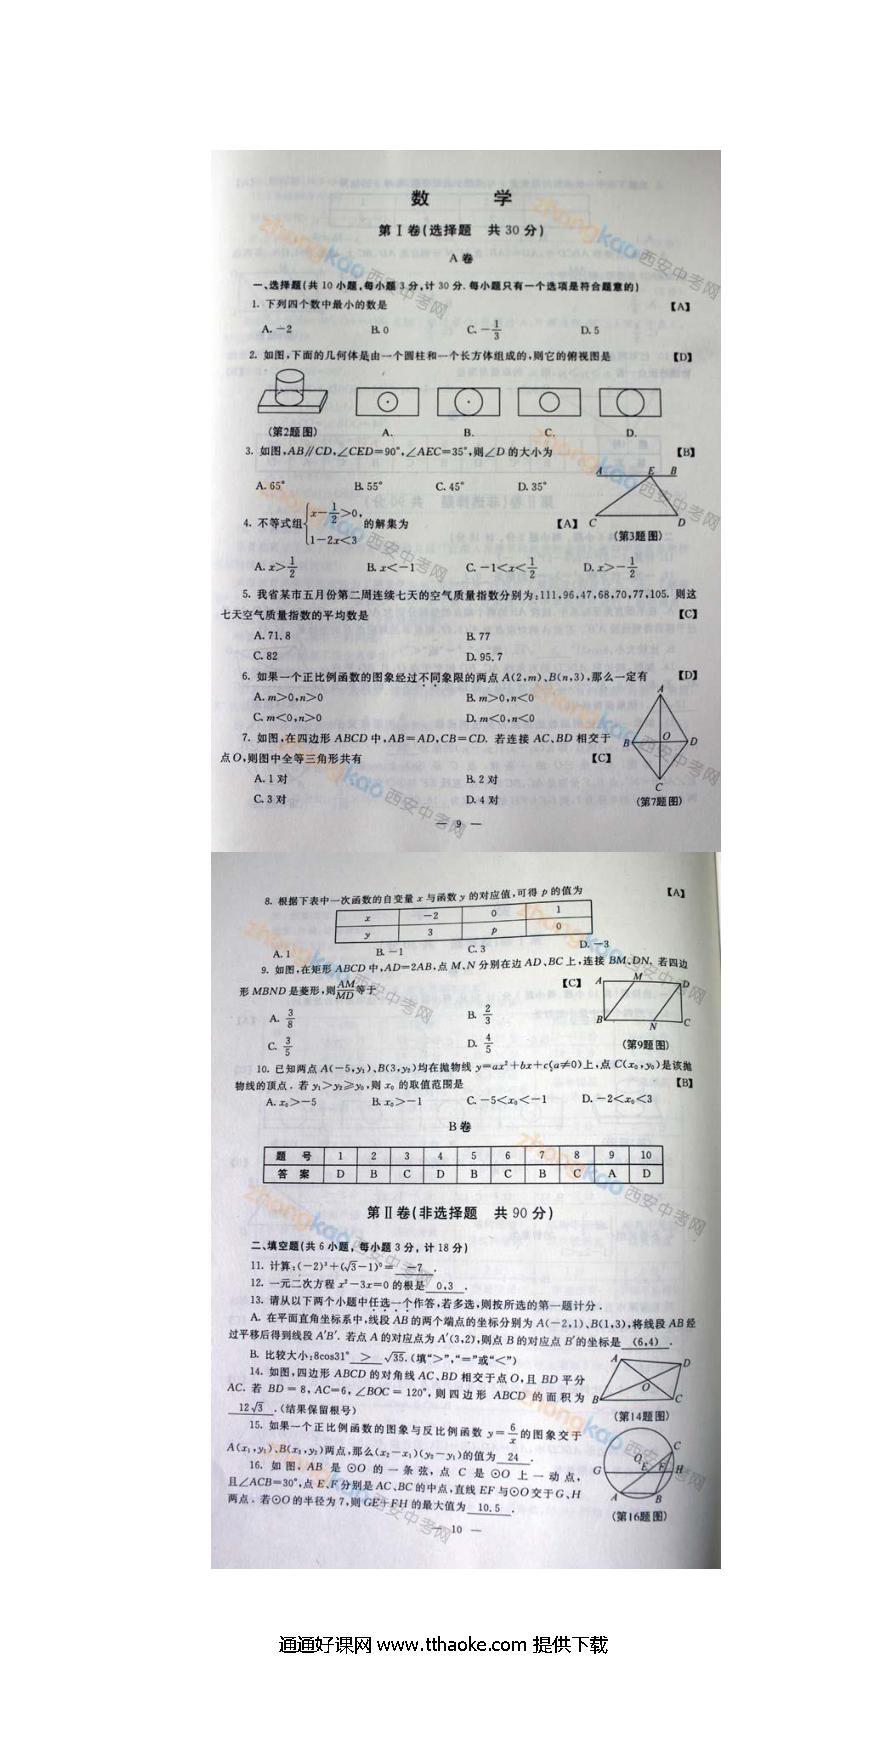 数 学
第Ⅰ卷(选择题 共30分)
A卷
一、选择题(共10小题,每小题3分,计30分.每小题只有一个选项是符合题意的)
1. 下列四个数中最小的数是 【A】
A. -2 B. 0 C. -1/3 D. 5
2. 如图,下面的几何体是由一个圆柱和一个长方体组成的,则它的俯视图是 【D】
(第2题图) A. B. C. D.
3. 如图,AB∥CD,∠CED=90°,∠AEC=35°,则∠D的大小为 【B】
A. 65° B. 55° C. 45° D. 35°
A E B
C D
(第3题图)
4. 不等式组{x-1/2>0, 1-2x<3 的解集为 【A】
A. x>1/2 B. x<-1 C. -1<x<1/2 D. x>-1/2
5. 我省某市五月份第二周连续七天的空气质量指数分别为:111,96,47,68,70,77,105. 则这
七天空气质量指数的平均数是 【C】
A. 71.8 B. 77
C. 82 D. 95.7
6. 如果一个正比例函数的图象经过不同象限的两点A(2,m)、B(n,3),那么一定有 【D】
A. m>0,n>0 B. m>0,n<0
C. m<0,n>0 D. m<0,n<0
7. 如图,在四边形ABCD中,AB=AD,CB=CD. 若连接AC、BD相交于
点O,则图中全等三角形共有 【C】
A. 1对 B. 2对
C. 3对 D. 4对
A
B O D
C
(第7题图)
— 9 —
8. 根据下表中一次函数的自变量x与函数y的对应值,可得p的值为 【A】
x -2 0 1
y 3 p 0
A. 1 B. -1 C. 3 D. -3
9. 如图,在矩形ABCD中,AD=2AB,点M、N分别在边AD、BC上,连接BM、DN. 若四边
形MBND是菱形,则AM/MD等于 【C】
A. 3/8 B. 2/3
C. 3/5 D. 4/5
A M D
B N C
(第9题图)
10. 已知两点A(-5,y₁)、B(3,y₂)均在抛物线y=ax²+bx+c(a≠0)上,点C(x₀,y₀)是该抛
物线的顶点. 若y₁>y₂≥y₀,则x₀的取值范围是 【B】
A. x₀>-5 B. x₀>-1 C. -5<x₀<-1 D. -2<x₀<3
B卷
题 号 1 2 3 4 5 6 7 8 9 10
答 案 D B C D B C B C A D
第Ⅱ卷(非选择题 共90分)
二、填空题(共6小题,每小题3分,计18分)
11. 计算:(-2)³+(√3-1)⁰= -7 .
12. 一元二次方程x²-3x=0的根是 0,3 .
13. 请从以下两个小题中任选一个作答,若多选,则按所选的第一题计分.
A. 在平面直角坐标系中,线段AB的两个端点的坐标分别为A(-2,1)、B(1,3),将线段AB经
过平移后得到线段A′B′. 若点A的对应点为A′(3,2),则点B的对应点B′的坐标是 (6,4) .
B. 比较大小:8cos31° > √35.(填“>”,“=”或“<”)
14. 如图,四边形ABCD的对角线AC、BD相交于点O,且BD平分
AC. 若BD=8,AC=6,∠BOC=120°,则四边形ABCD的面积为
12√3 .(结果保留根号)
A D
O
B C
(第14题图)
15. 如果一个正比例函数的图象与反比例函数y=6/x的图象交于
A(x₁,y₁)、B(x₂,y₂)两点,那么(x₂-x₁)(y₂-y₁)的值为 24 .
16. 如图,AB是⊙O的一条弦,点C是⊙O上一动点,
且∠ACB=30°,点E、F分别是AC、BC的中点,直线EF与⊙O交于G、H
两点. 若⊙O的半径为7,则GE+FH的最大值为 10.5 .
C
O
G E F H
A B
(第16题图)
— 10 —
zhongkao 西安中考网
通通好课网 www.tthaoke.com 提供下载